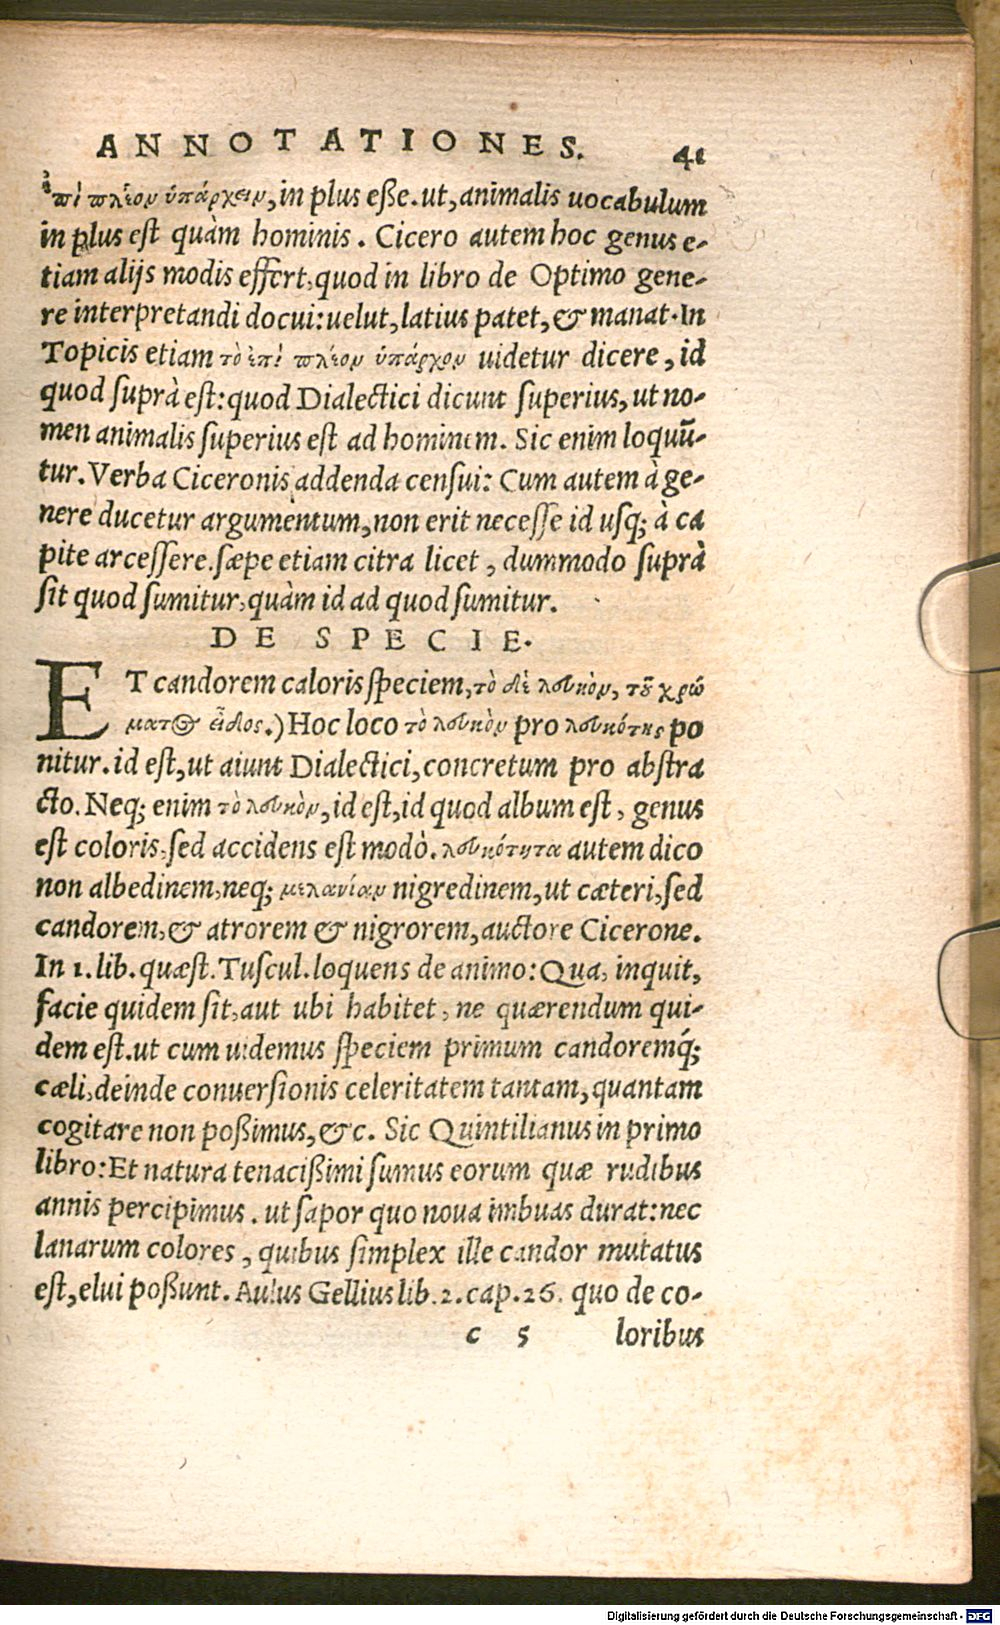 ANNOTATIONES. 41
ἐπὶ πλέον ὑπάρχειν, in plus eße. ut, animalis uocabulum
in plus est quàm hominis. Cicero autem hoc genus e-
tiam alijs modis effert, quod in libro de Optimo gene-
re interpretandi docui: uelut, latius patet, & manat. In
Topicis etiam τὸ ἐπὶ πλέον ὑπάρχον uidetur dicere, id
quod suprà est: quod Dialectici dicunt superius, ut no-
men animalis superius est ad hominem. Sic enim loquũ-
tur. Verba Ciceronis addenda censui: Cum autem à ge-
nere ducetur argumentum, non erit necesse id usq; à ca
pite arcessere. sæpe etiam citra licet, dummodo suprà
sit quod sumitur, quàm id ad quod sumitur.
DE SPECIE.
ET candorem caloris speciem, τὸ δὲ λευκὸν, τοῦ χρώ
ματος εἶδος.) Hoc loco τὸ λευκὸν pro λευκότης po
nitur. id est, ut aiunt Dialectici, concretum pro abstra
cto. Neq; enim τὸ λευκὸν, id est, id quod album est, genus
est coloris, sed accidens est modò. λευκότητα autem dico
non albedinem, neq; μελανίαν nigredinem, ut cæteri, sed
candorem, & atrorem & nigrorem, auctore Cicerone.
In 1. lib. quæst. Tuscul. loquens de animo: Qua, inquit,
facie quidem sit, aut ubi habitet, ne quærendum qui-
dem est. ut cum uidemus speciem primum candoremq́;
cæli, deinde conuersionis celeritatem tantam, quantam
cogitare non poßimus, &c. Sic Quintilianus in primo
libro: Et natura tenacißimi sumus eorum quæ rudibus
annis percipimus. ut sapor quo noua imbuas durat: nec
lanarum colores, quibus simplex ille candor mutatus
est, elui poßunt. Aulus Gellius lib. 2. cap. 26. quo de co-
c 5 loribus
Digitalisierung gefördert durch die Deutsche Forschungsgemeinschaft - DFG